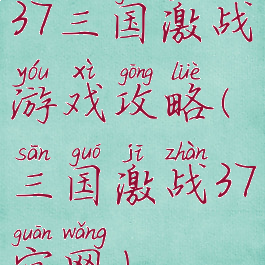 37三国激战
yóu xì gōng lüè
游戏攻略(
sān guó jī zhàn
三国激战37
guān wǎng
官网)